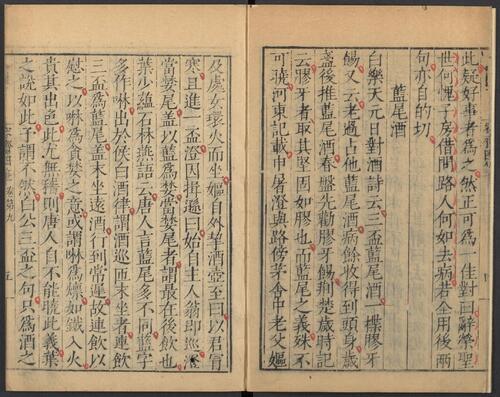 此疑好事者爲之然正可爲一佳對曰辭榮聖
世何愧子房借問路人何如去病若全用後兩
句亦自的切
藍尾酒
白樂天元日對酒詩云三盃藍尾酒一楪膠牙
餳又云老過占他藍尾酒病餘收得到頭身歲
盞後推藍尾酒春盤先勸膠牙餳荆楚歲時記
云膠牙者取其堅固如膠也而藍尾之義殊不
可曉河東記載申屠澄與路傍茅舍中老父嫗
及處女環火而坐嫗自外挈酒壺至曰以君冒
寒且進一盃澄因揖遜曰始自主人翁即巡澄
當婪尾蓋以藍爲婪當婪尾者謂最在後飲也
葉少蘊石林燕語云唐人言藍尾多不同藍字
多作啉出於侯白酒律謂酒巡匝末坐者連飲
三盃爲藍尾蓋末坐遠酒行到常遲故連飲以
慰之以啉爲貪婪之意或謂啉爲燷如鐵入火
貴其出色此尤無稽則唐人自不能曉此義葉
之說如此予謂不然白公三盃之句只爲酒之
卷第九
五